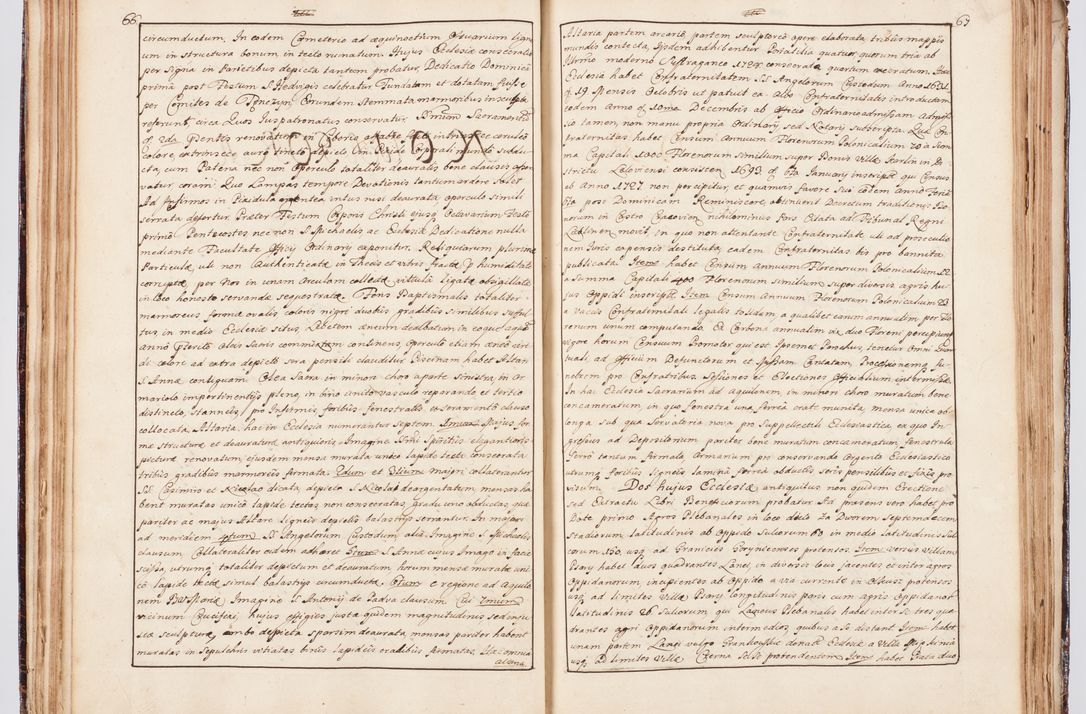 66
circumductum. In eodem Cæmeterio ad æquinoctium Ossuarium lign
um in structura bonum in tecto ruinatum. Hujus Ecclesiæ consecratio
per Signa in Parietibus depicta tantum probatur, Dedicatio Dominica
prima post Festum S. Hedvigis celebratur. Fundatam et dotatam fuisse
per Comites de Tęnczyn, Eorundem Stemmata marmoribus insculpta
referunt, circa Quos Juspatronatus conservatur.
colore, extrinsece auro tincto depicto in Pixide
cta, cum Patena nec non operculo totaliter deauratis bene clausis asser
vatur coram Quo Lampas tempore Devotionis tantum ardere solet.
Ad Infirmos in Pixidula argentea, intus nisi deaurata operculo simili
serrata defertur. Præter Festum Corporis Christi ejusq Octavarium Festo
primo Pentecostes nec non S. Michaelis ac Ecclesiæ Dedicatione nulla
mediante Facultate Officij Ordinarij exponitur. Reliquiarum plurimæ
Particulæ, uti non authenticatæ in Thecis et vitris fractæ p humiditate
corruptæ, per Nos in unam Arculam collectæ, vittula ligatæ obsigillatæ
in loco honesto servandæ sequestratæ. Fons Baptismalis totaliter
marmoreus formæ ovalis coloris nigri duobus gradibus similibus suffultus
tus in medio Ecclesiæ situs, Lebetem æneum dealbatum in eoque aquam
di colore ad extra depicto sera pensili clauditur Piscinam habet Altari
S. Annæ contiguam. Olea Sacra in minori choro a parte sinistra, in Ar
mariolo impertinentijs pleno, in bino unito vasculo reparando et tertio
distincto, stanneis, pro Infirmis, foribus fenestrallis, ac seramento clauso
collocata. Altaria hac in Ecclesia numerantur Septem. Majus, for
mæ Structuræ et deauraturæ antiquioris, Imagine Sstmi Spiritus elegantioris
picturæ renovatum, ejusdem mensa murata unico lapide tecta consecrata
tribus gradibus marmoreis firmata. 2dum et 3tium majori collateraliter
SS. Casimiro et Nicolao dicata, depicto S. Nicolao deargentatum mensas ha
bent muratas unico lapide tectas non consecratas, gradu uno obductas, quæ
pariter ac majus Altare ligneis depictis balastris serrantur. In majori
ad meridiem 4tum SS. Angelorum Custodum alia Imagine S. Michaelis
clausum. Collateraliter eidem adhæret S. Annæ cujus Imago in facie
scissa, utrumq totaliter depictum et deauratum horum mensæ muratæ uni
co lapide tectæ simul balastris circumductæ. 6tum e regione ad aquilo
nem Imagine S. Antonij de Padva clausum. Cui 7mum
vicinum Crucifixi, hujus effigies justa quidem magnitudinis sed in su
sta sculptura, ambo depicta sparsim deaurata, mensas pariter habent
muratas in sepulchris vitiatas binis lapideis gradibus firmatas. Hæc omnia
altaria
67
Altaria partem arcario, partem sculptorio opere elaborata, tribus mappis
mundis contecta, Ipsdem adhibentur Portatilia quatuor, quorum tria ab
Illrmo moderno Suffraganeo 1727 consecrata, quartum execratum. Hæc
Ecclesia habet Confraternitatem SS. Angelorum Custodum Anno 1621.
eodem Anno 10ma Decembris ab Officio Ordinario admissam, admis
sio tamen, non manu propria Ordinarij sed Notarij subscripta. Quæ Con
fraternitas habet Censum Annuum Florenorum Polonicalium 70 a Sum
ma Capitali 1000 Florenorum similium super Bonis Villæ in Di
strictu Lelovensi consisten 1693 Januarij inscriptæ qui Census
ab Anno 1727 non percipitur, et quamvis favore Sui eodem Anno
post Dominicam Reminiscere, obtinuerit Decretum traditionis Bo
norum in Castro Cracovien nihilominus Pars Citata ad Tribunal Regni
Lublinen movit, in quo non attentante Confraternitate uti ad prosecutio
nem Juris expensis destituta, eadem Confraternitas bis pro bannita
publicata. Item habet Censum annuum Florenorum Polonicalium 12
a Summa Capitali Florenorum similium super diversis agris hu
jus Oppidi inscriptæ. Item Censum Annuum Florenorum Polonicalium 23
a vaccis Confraternitati legatis totidem, a qualibet earum annuatim per Flo
renum unum computando. Ex Carbona annuatim vix duo Floreni percipiuntur
vigore horum Censuum Promotor qui est Ipsemet Parochus, tenetur Omni
tuali ad officium Defunctorum et Missam Cantatam, Processionem Fu
nebrem pro Confratribus, Sessiones et Electiones Officialium intermissæ.
In hac Ecclesia Sacrarium ad Aquilonem, in minori choro muratum bene
concameratum, in quo fenestra una, ferrea crate munita, mensa unica ob
longa, sub qua Servatoria nova pro Suppellectili Ecclesiastica, ex quo In
gressus ad Depositorium pariter bene muratum concameratum, fenestrula
Ferro tantum firmata. Armarium pro conservando Argento Ecclesiastico
utrumq foribus ligneis lamina ferrea obductis seris pensilibus et fixis pro
visum. Dos hujus Ecclesiæ antiquitus non quidem Erectione
sed Extractu Libri Beneficiorum probatur. Ad præsens vero habet, pro
Dote primo Agros Plebanales in loco dicto Za Dworem Septemdecem
Stadiorum latitudines ab Oppido Sulcorum 80 in medio latitudinis Sul
corum 150, usq ad Granicies Gorynicenses protensos. Item versus Villam
Psary habet duos quadrantes Lanei, in diversis locis jacentes et inter agros
Oppidanorum incipientes ab Oppido a via currente in Olkusz protensos
usq ad limites Villæ Psary longitudinis paris cum agris Oppidanorum
latitudinis 26 Sulcorum qui Laneus Plebanalis habet inter se tres qua
drantes agri Oppidanorum intermedios, quibus a se distant. Item habet
unam partem Lanei vulgo Frankowskie donatæ Ecclesiæ a Villa
usq ad limites Villæ Czerna se se protendentem. Item habet Prata duo